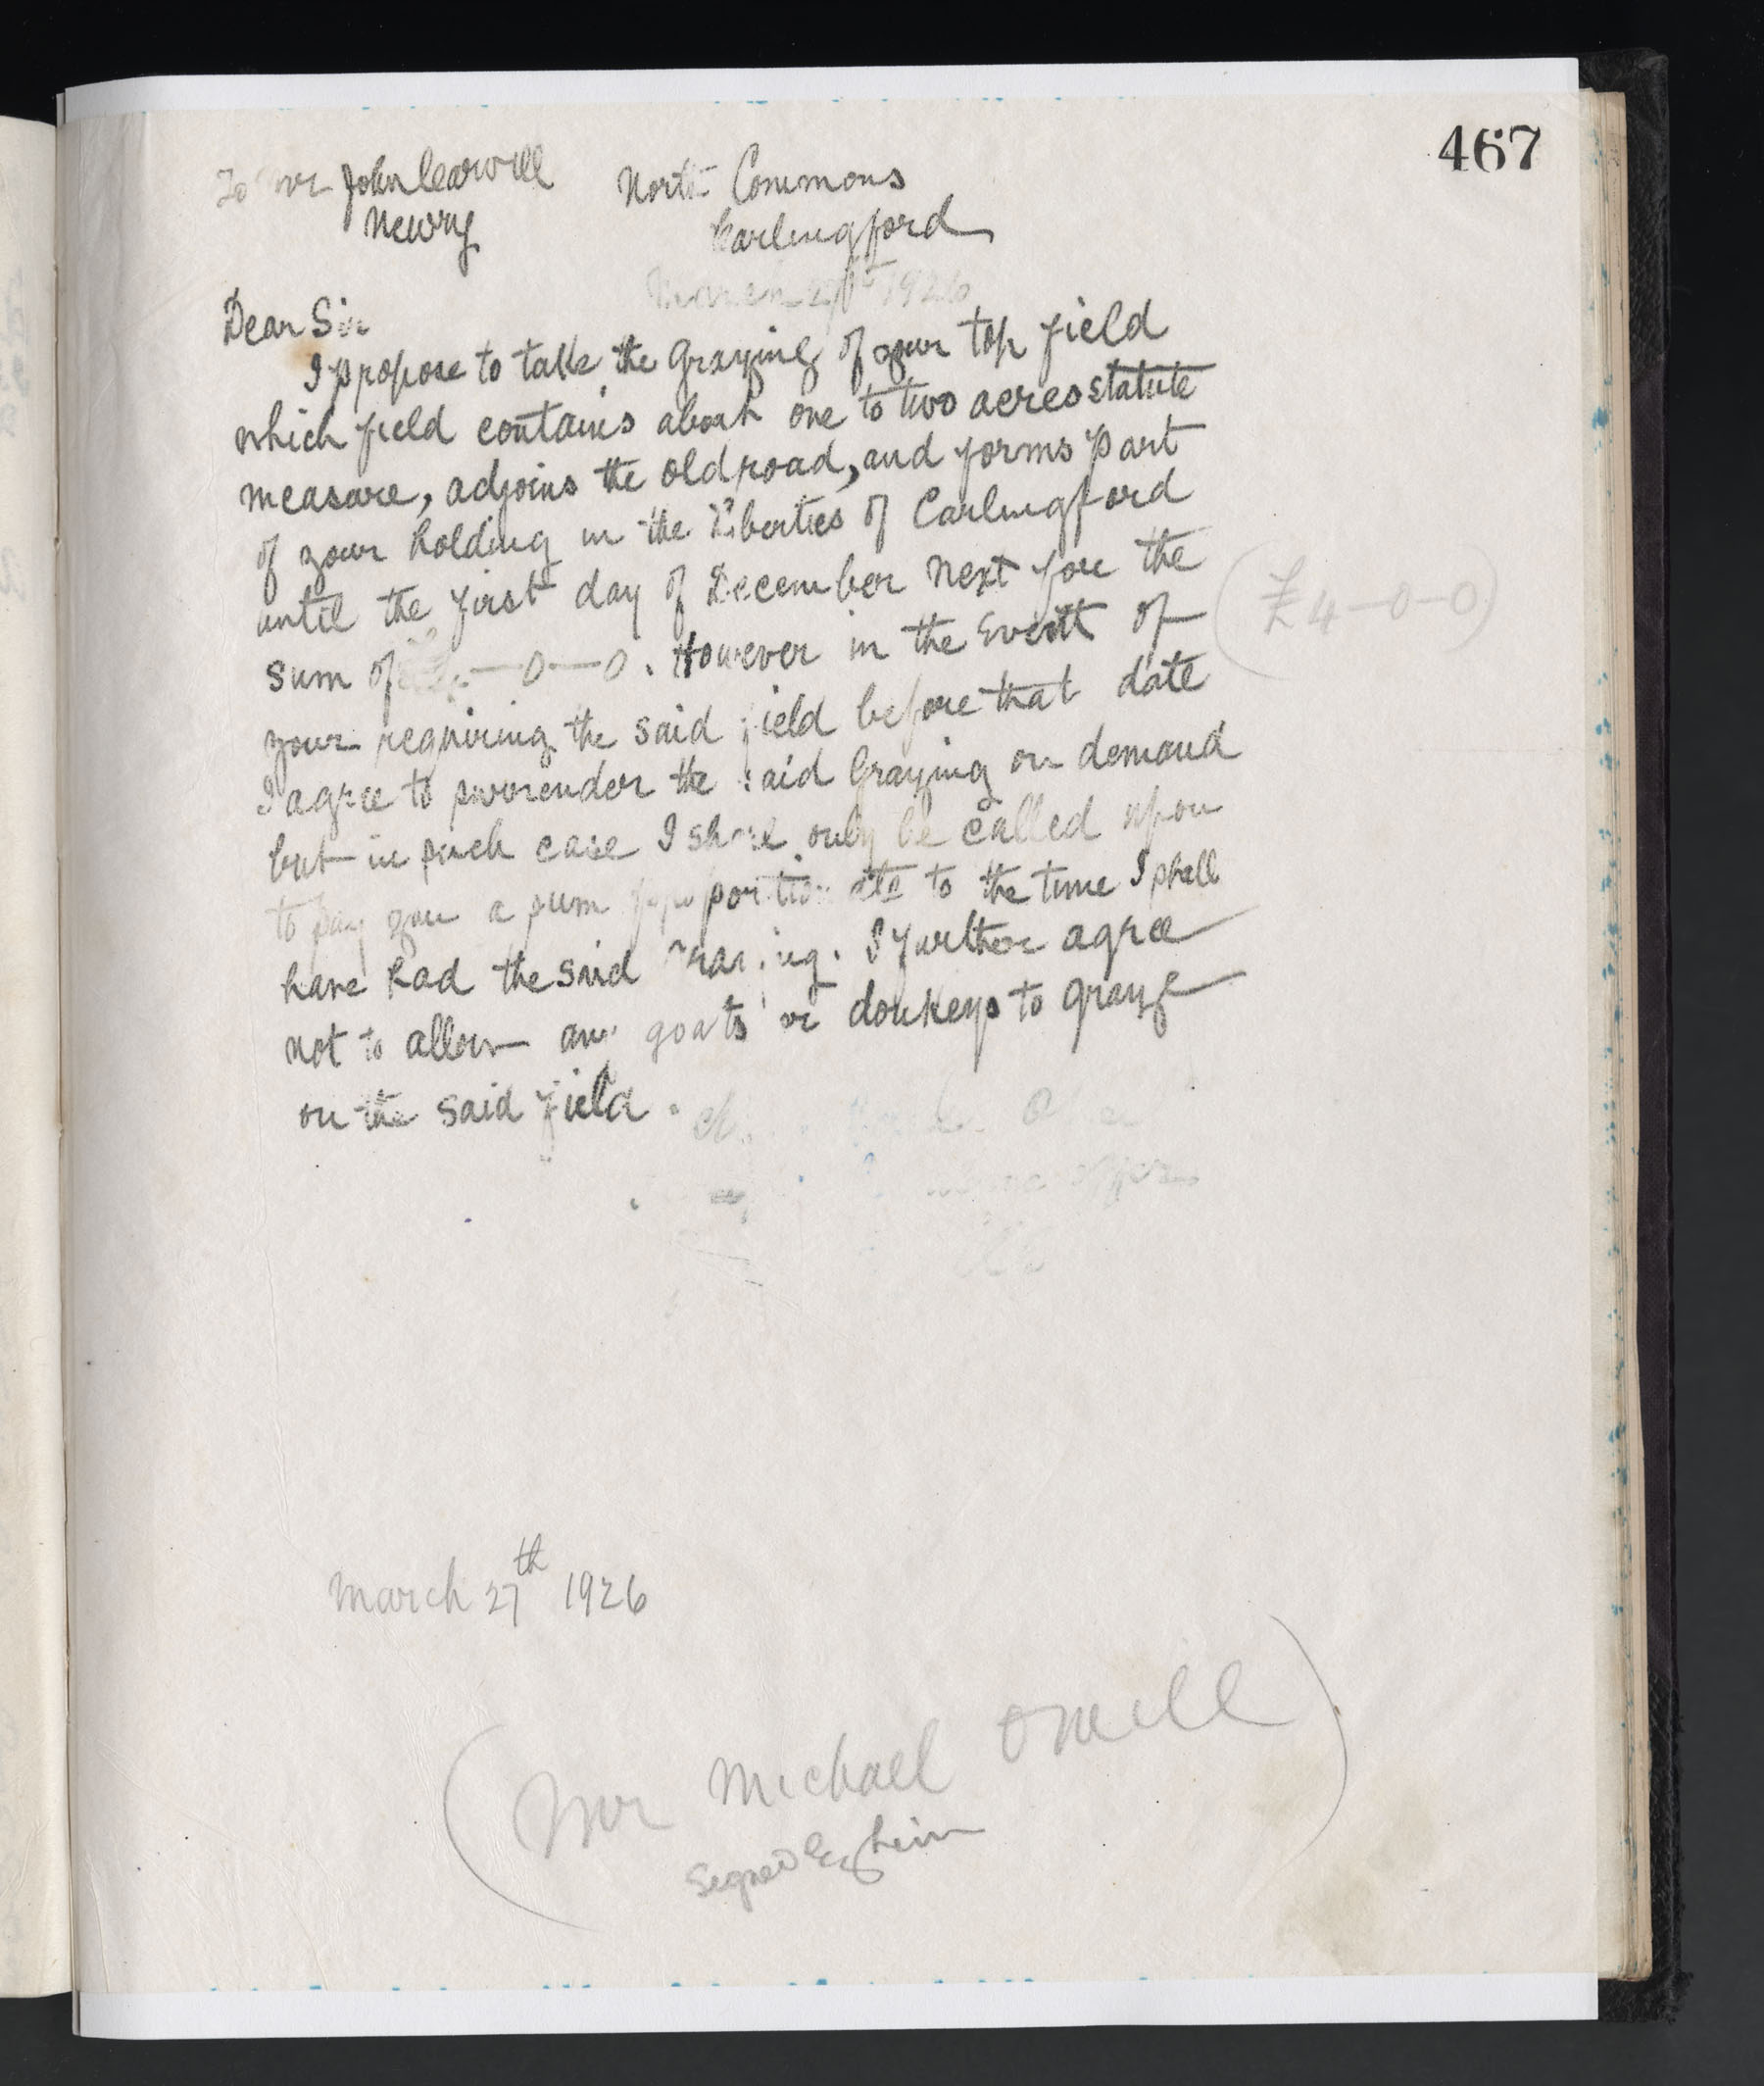 467
To Mr John Cearwill
North Commons
Newry
Carlingford
March 27th 1926
Dear Sir
I propose to take the Grazing of your top field
which field contains about one to two acres statute
measure, adjoins the old road, and forms part
of your holding in the Liberties of Carlingford
until the first day of December next for the
sum of £4-0-0. However in the Event of
(£4-0-0)
your requiring the said field before that date
I agree to surrender the said Grazing on demand
but in such case I shall only be called upon
to pay you a sum proportionate to the time I shall
have had the said Grazing. I further agree
not to allow any goats or donkeys to graze
on the said field.
March 27th 1926
(Mr Michael ONeill)
Signed by him